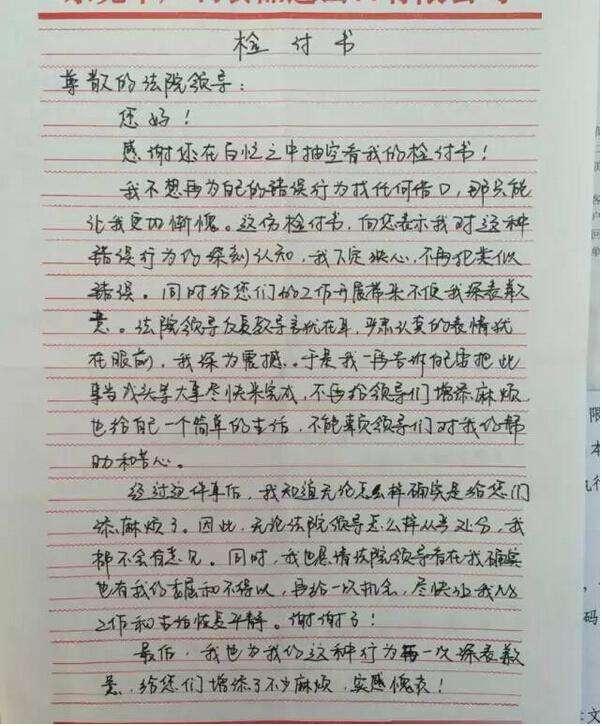 检讨书
尊敬的法院领导：
您好！
感谢您在百忙之中抽空看我的检讨书！
我不想再为自己的错误行为找任何借口，那只能
让我更加惭愧。这份检讨书，向您表示我对这种
错误行为的深刻认知，我下定决心，不再犯类似
错误。同时给您们的工作开展带来不便我深表歉
意。法院领导反复教导言犹在耳，严肃认真的表情犹
在眼前，我深为震撼。于是我一再告诉自己要把此
事当成头等大事尽快来完成，不再给领导们增添麻烦
也给自己一个简单的生活，不能辜负领导们对我的帮
助和苦心。
经过这件事后，我知道无论怎么样确实是给您们
添麻烦了。因此，无论法院领导怎么样从严处分，我
都不会有意见。同时，我也恳请法院领导看在我确实
也有我的委屈和不得以，再给一次机会，尽快让我的
工作和生活恢复平静。谢谢了！
最后，我也为我的这种行为再一次深表歉
意，给您们增添了不少麻烦，实感愧表！